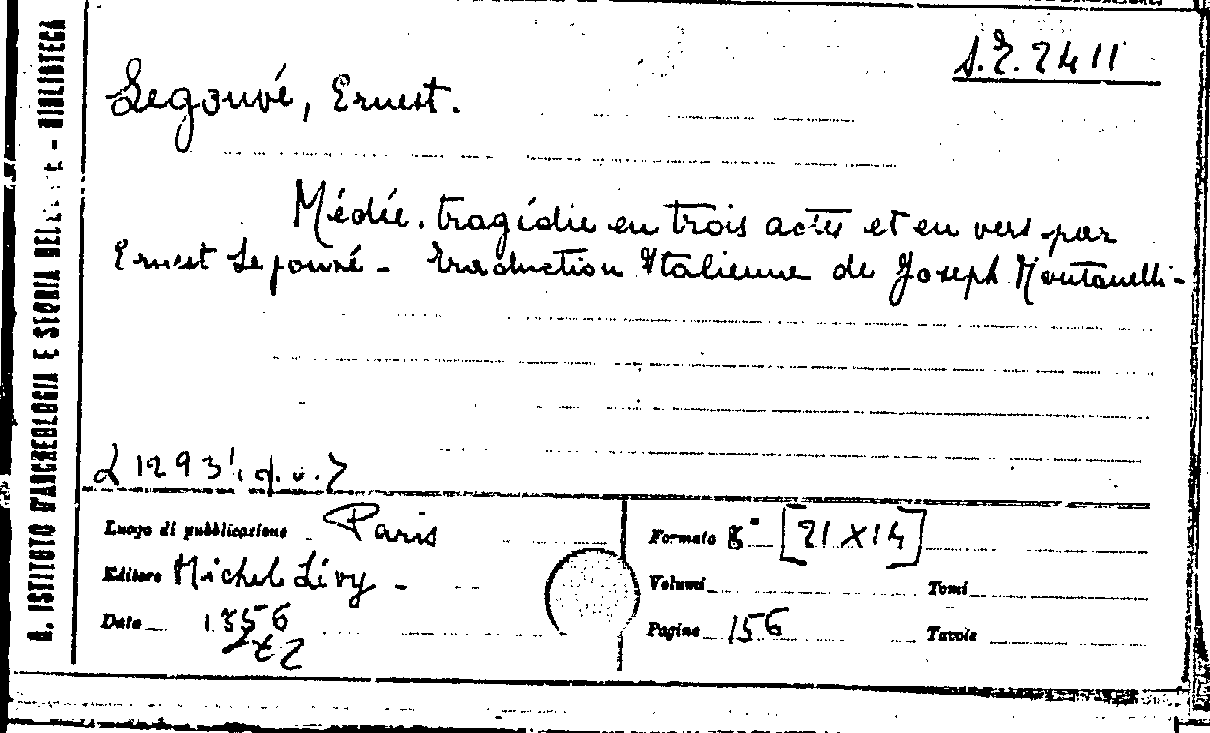 S.Z. 2411
Legouvé, Ernest.
Médée. tragédie en trois actes et en vers par
Ernest Legouvé - traduction Italienne de Joseph Montanelli -
R. ISTITUTO D'ARCHEOLOGIA E STORIA DELL' - BIBLIOTECA
L 1293
Luogo di pubblicazione Paris
Editore Michel Lévy -
Data 1856
Formato 8° [21 X 14]
Volumi Tomi
Pagine 156 Tavole